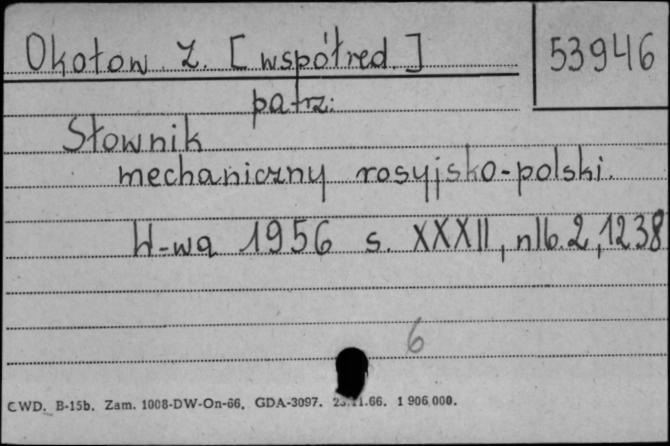 Okołow Z. [współred.]
53946
patrz:
Słownik
mechaniczny rosyjsko-polski.
W-wa 1956 s. XXXII, nlb. 2, 1238
6
CWD. B-15b. Zam. 1008-DW-On-66. GDA-3097. 23.11.66. 1 906 000.